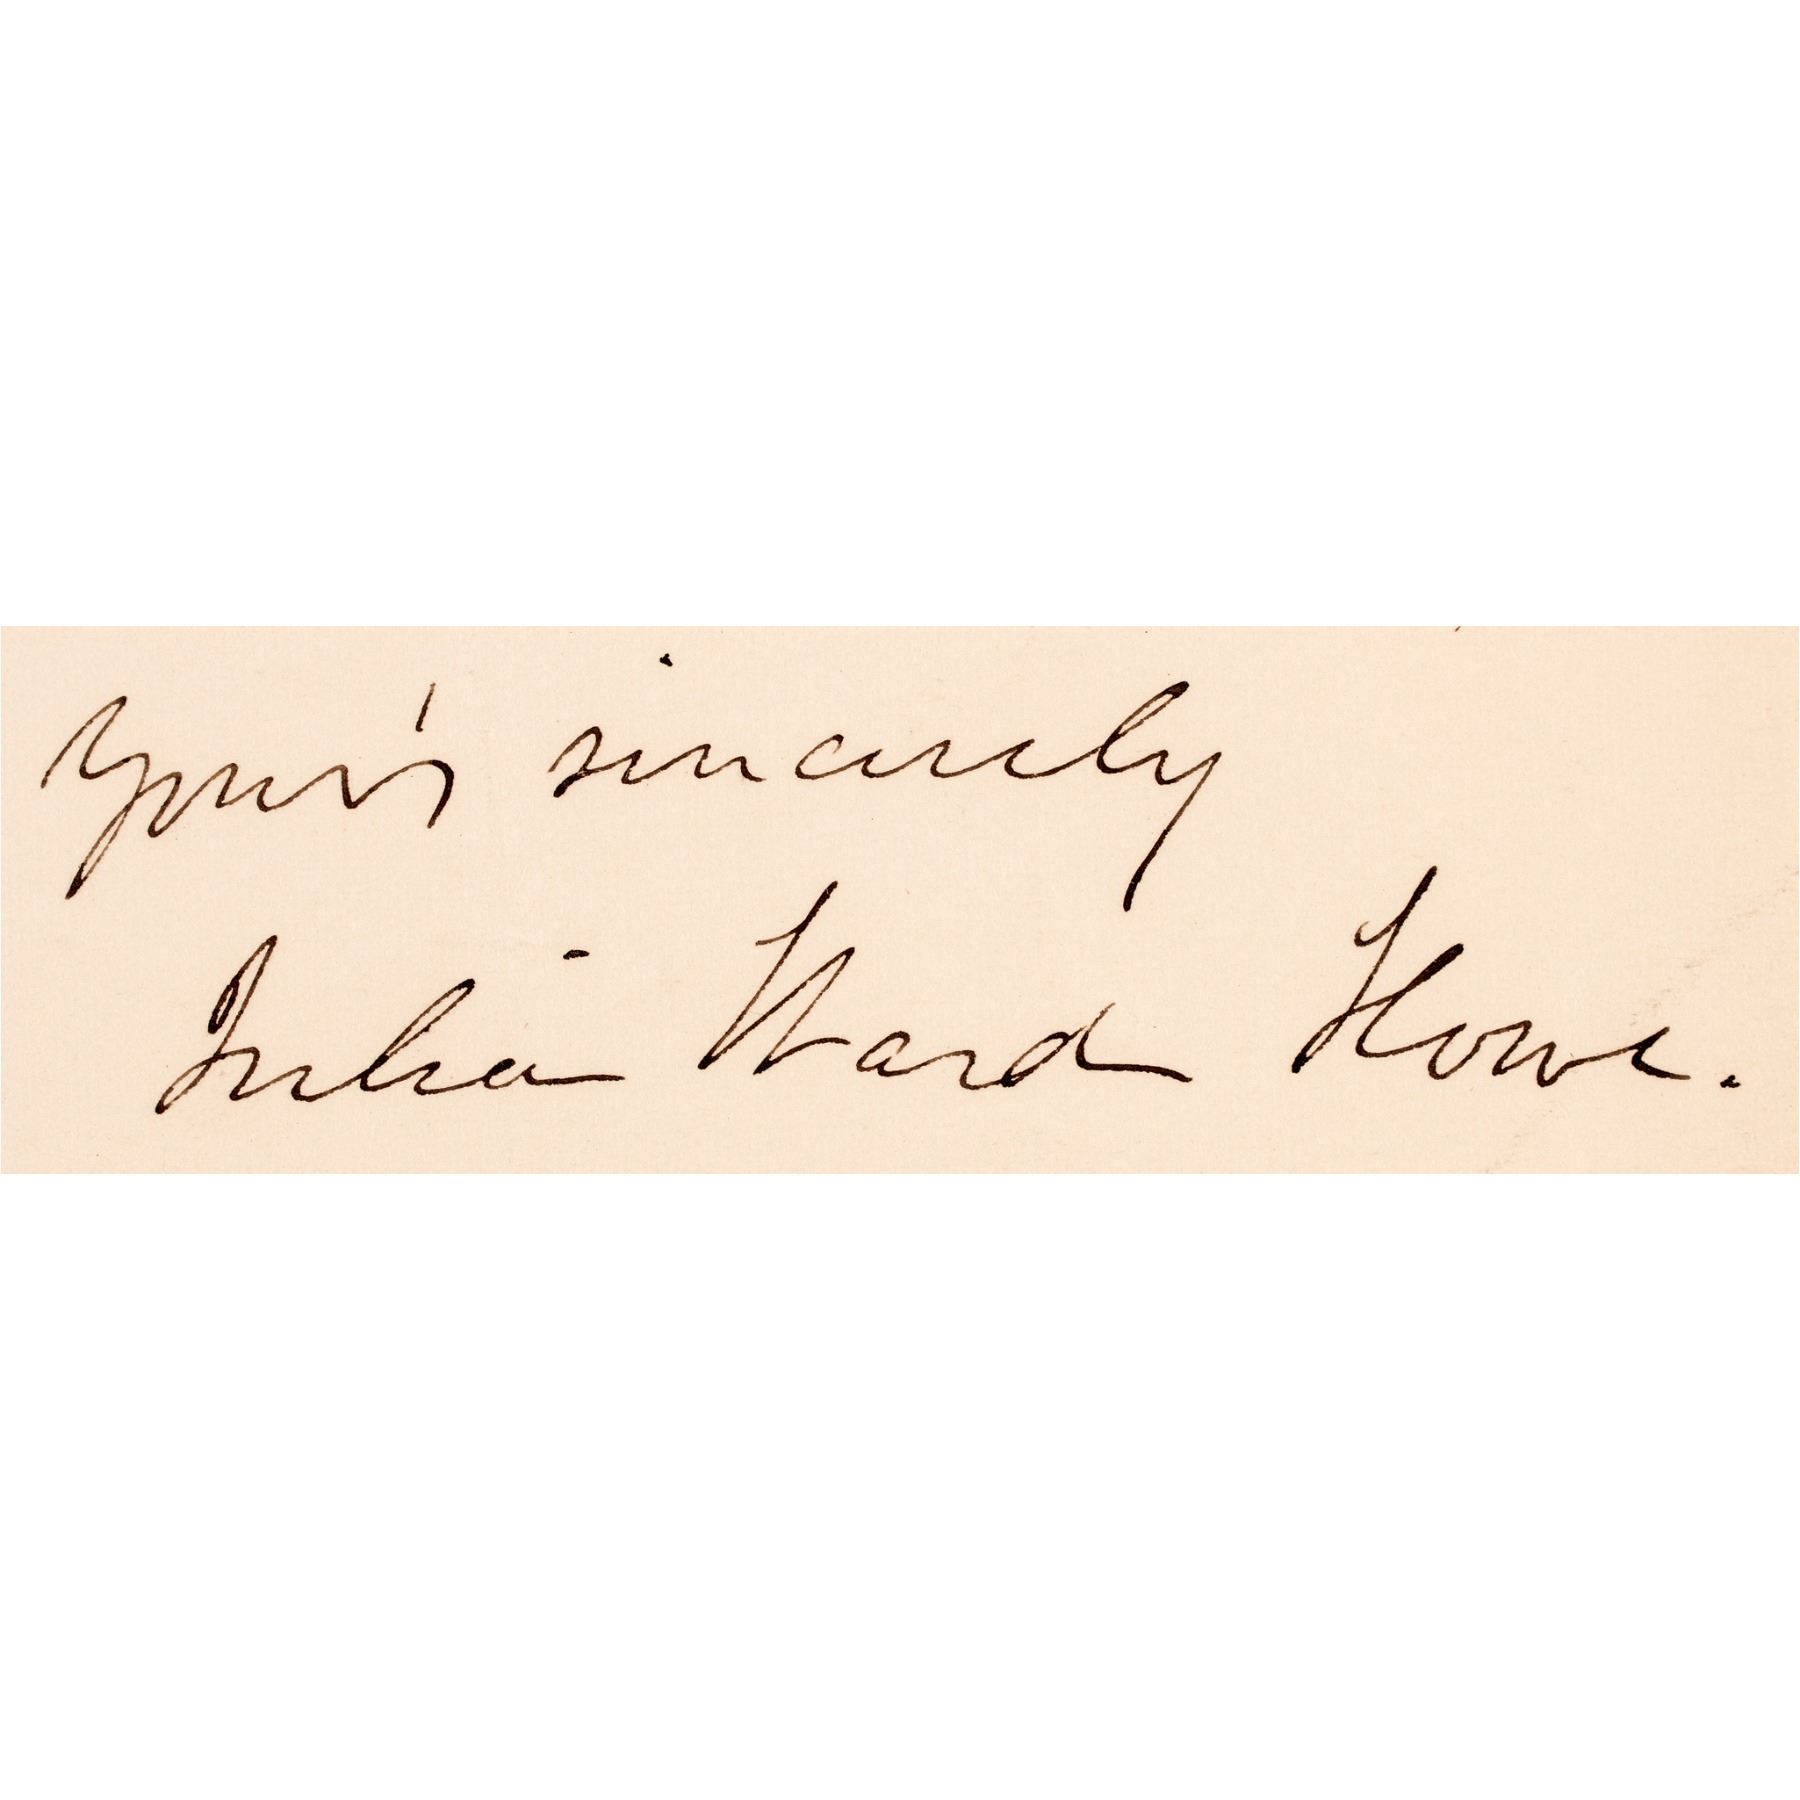 Your's sincerely
Julia Ward Howe.